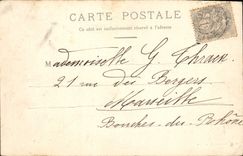 CARTE POSTALE
Ce côté est exclusivement réservé à l'adresse
Mademoiselle G.
21 rue des Bergers
Marseille
Bouches-du-Rhône